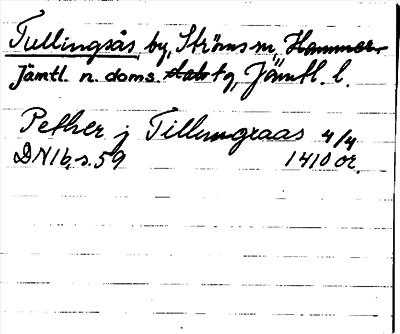 Tullingsås by, Ströms sn, Hammer-
Jämtl. n. doms. tg, Jämtl. l.
Pether j Tillungraas 4/4
DN16, s. 59 1410 or.